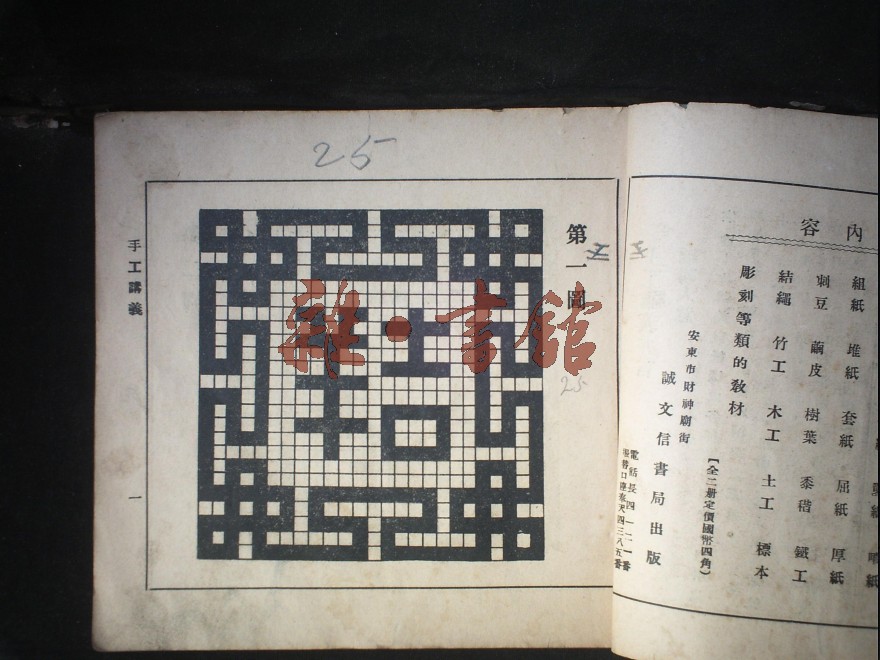 內容
組紙 堆紙 套紙 屈紙 厚紙
刺豆 繭皮 樹葉 黍稭 鐵工
結繩 竹工 木工 土工 標本
彫刻等類的教材
[全二册定價國幣四角)
安東市財神廟街
誠文信書局出版
電話長四一二一番
25
第一圖
25
手工講義
一
雜·書館